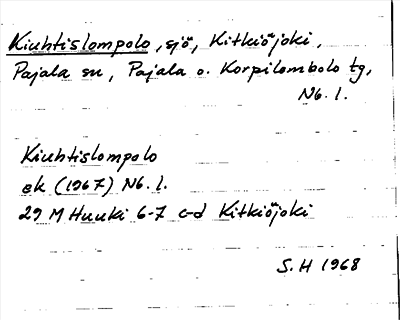 Kiuhtislompolo, sjö, Kitkiöjoki,
Pajala sn, Pajala o. Korpilombolo tg,
Nb. l.
Kiuhtislompolo
ek (1967) Nb. l.
29 M Huuki 6-7 c-d Kitkiöjoki
S. H 1968